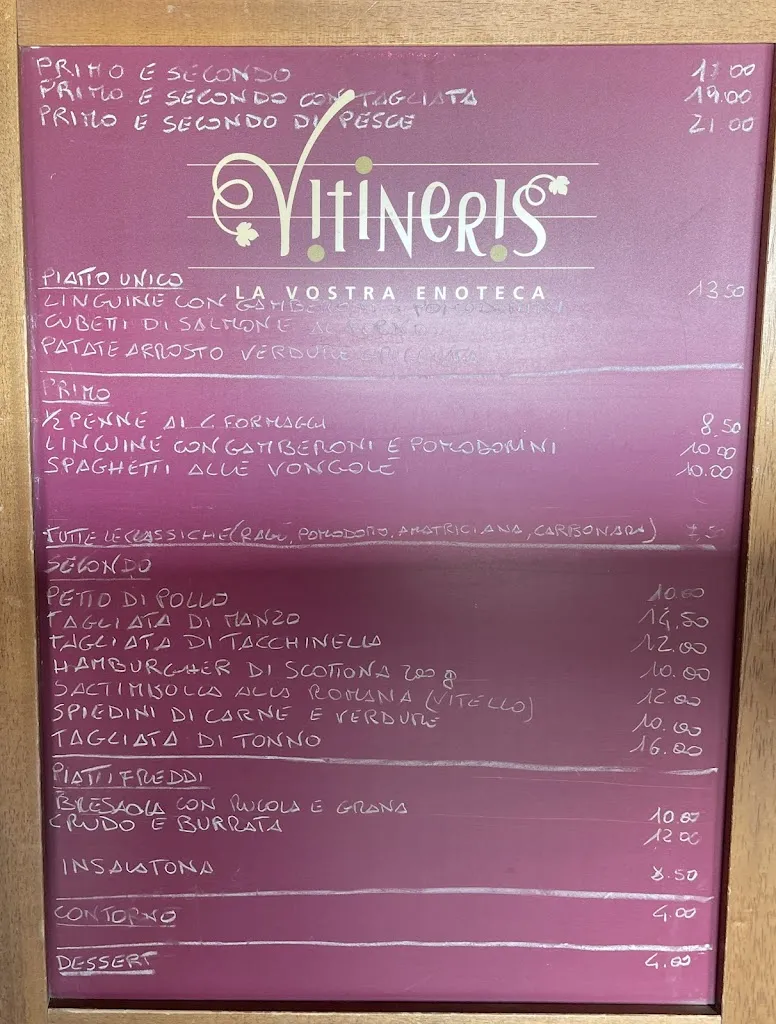 PRIMO E SECONDO 17.00
PRIMO E SECONDO CON TAGLIATA 19.00
PRIMO E SECONDO DI PESCE 21.00
VITINERIS
LA VOSTRA ENOTECA
PIATTO UNICO
LINGUINE CON GAMBERONI E POMODORINI 13.50
CUBETTI DI SALMONE
PATATE ARROSTO VERDURE
PRIMO
½ PENNE AI 4 FORMAGGI 8.50
LINGUINE CON GAMBERONI E POMODORINI 10.00
SPAGHETTI ALLE VONGOLE 10.00
TUTTE LE CLASSICHE (RAGÙ, POMODORO, AMATRICIANA, CARBONARA) 7.50
SECONDO
PETTO DI POLLO 10.00
TAGLIATA DI MANZO 14.50
TAGLIATA DI TACCHINELLA 12.00
HAMBURGHER DI SCOTTONA 200 g 10.00
SALTIMBOCCA ALLA ROMANA (VITELLO) 12.00
SPIEDINI DI CARNE E VERDURE 10.00
TAGLIATA DI TONNO 16.00
PIATTI FREDDI
BRESAOLA CON RUCOLA E GRANA 10.00
CRUDO E BURRATA 12.00
INSALATONA 8.50
CONTORNO 4.00
DESSERT 4.00